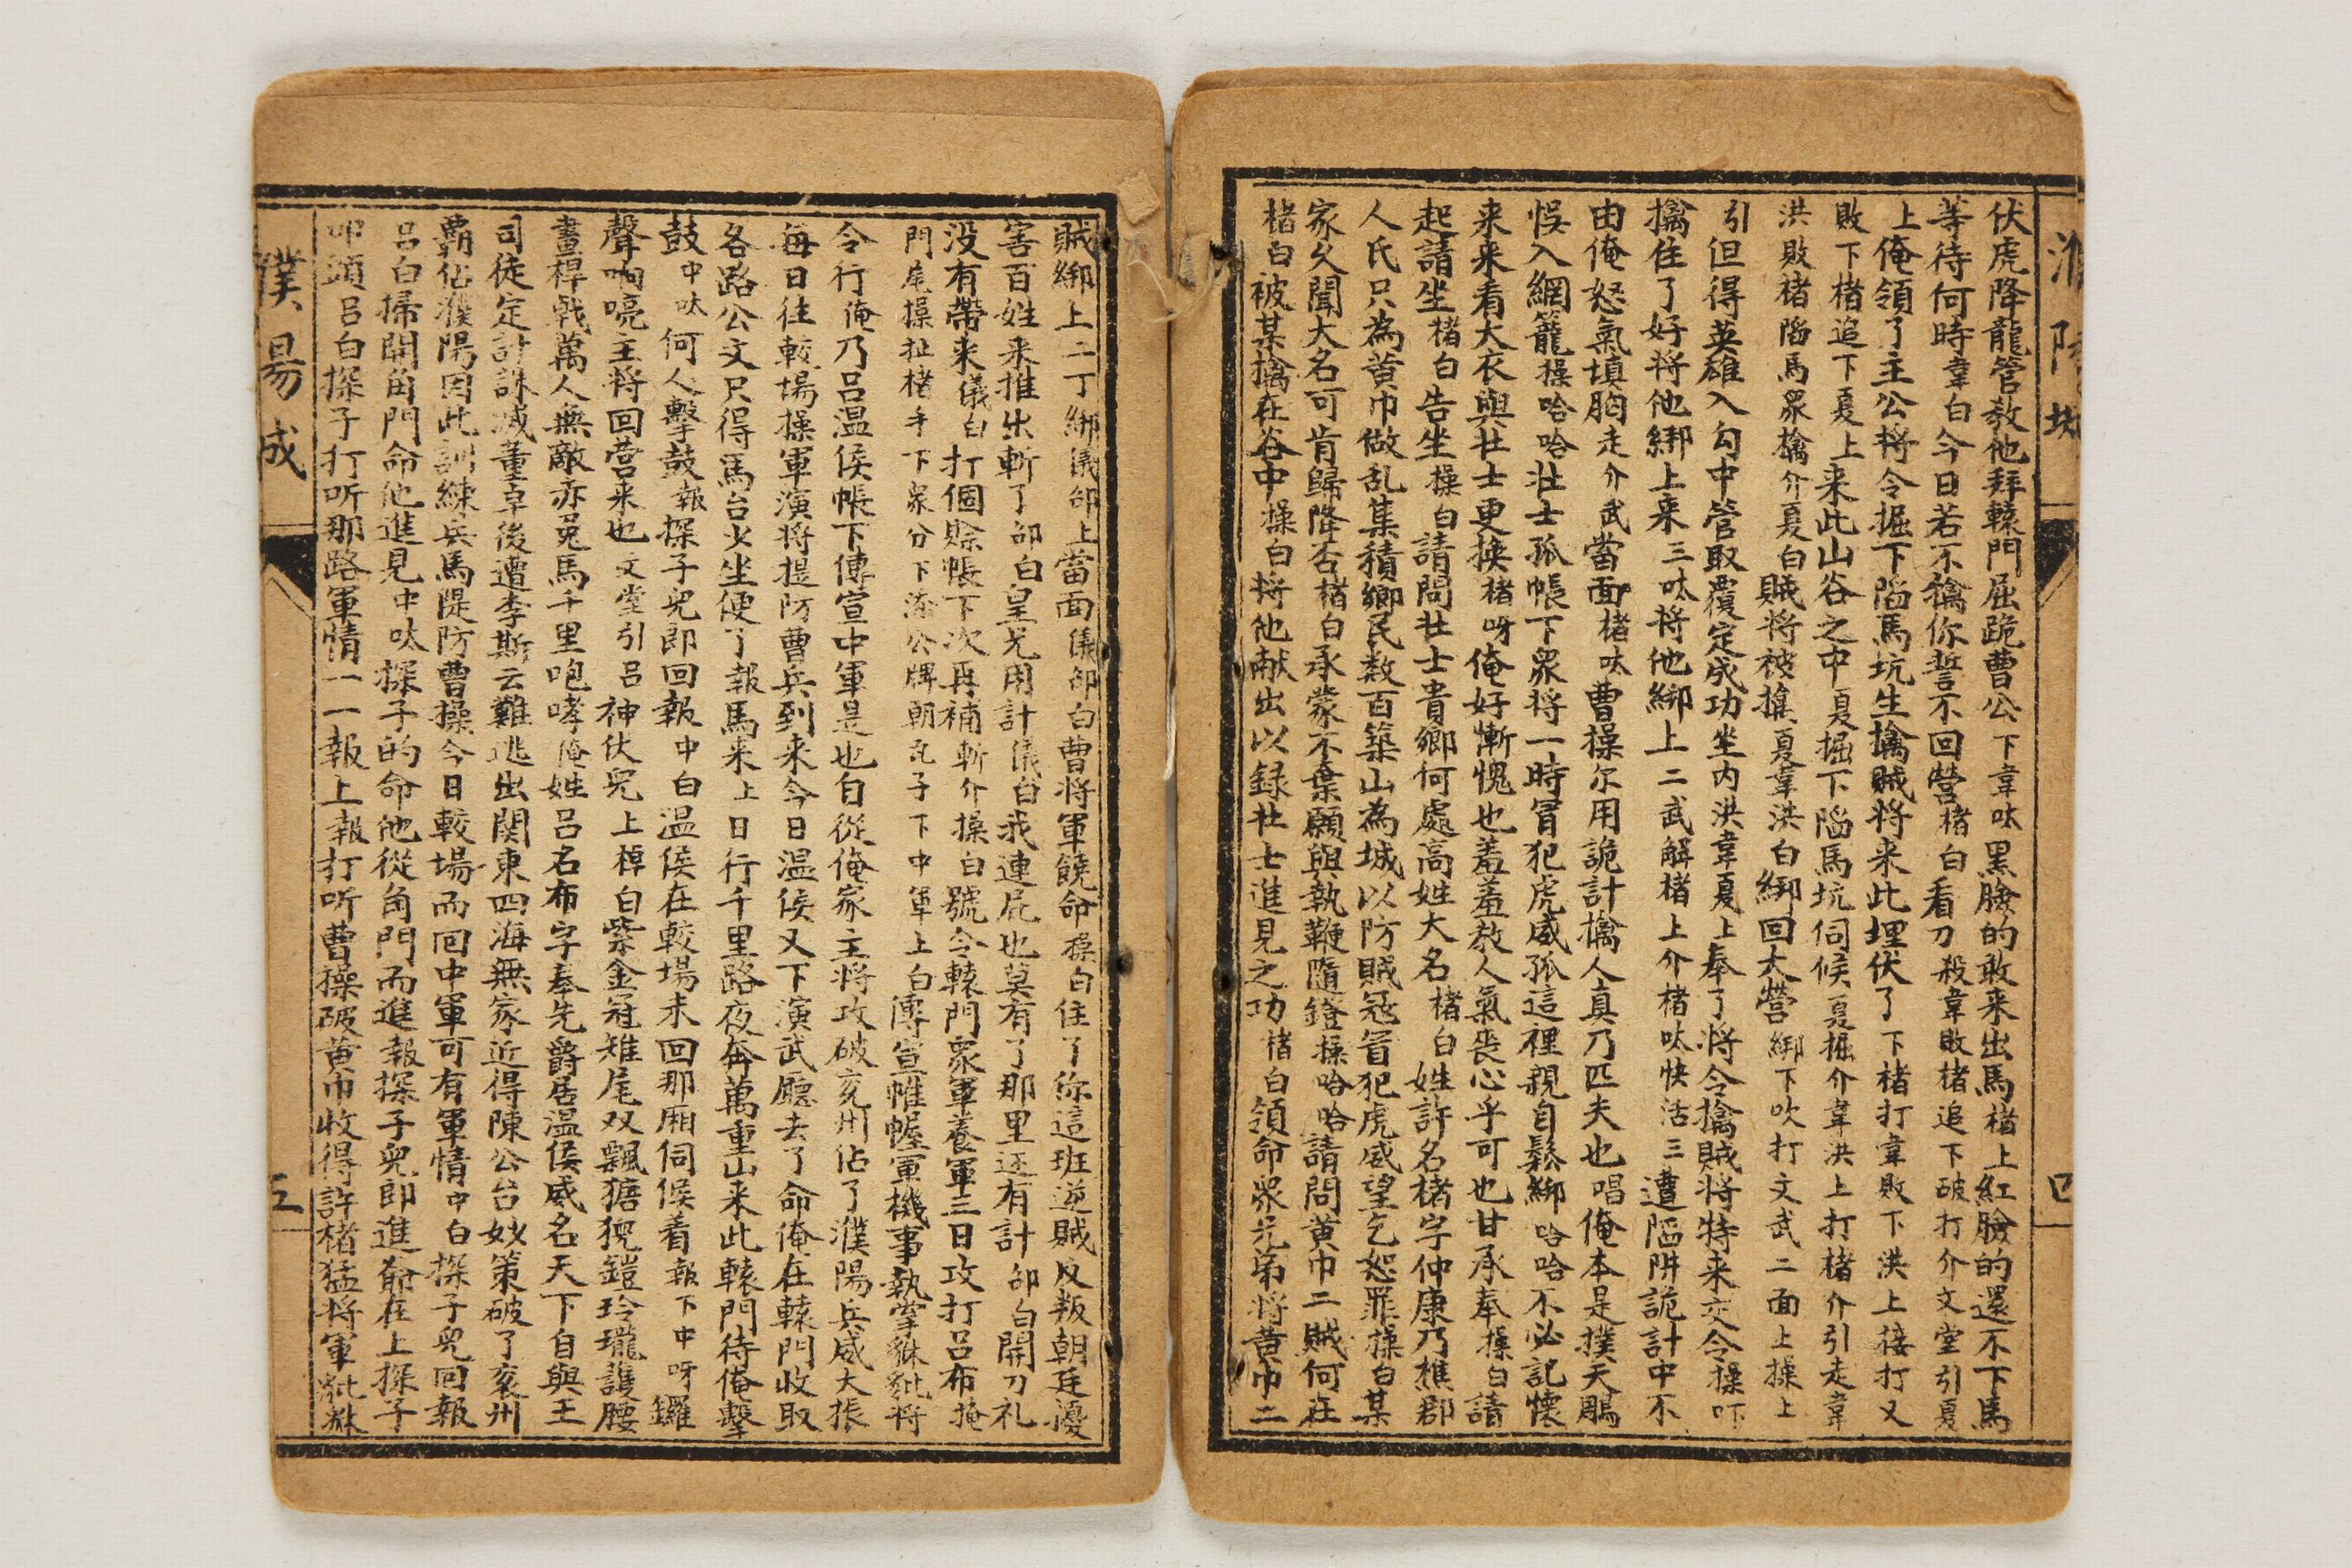 伏虎降龍管教他拜轅門屈跪曹公下韋呔黑臉的敢来出馬楮上紅臉的還不下馬
等待何時韋白今日若不擒你誓不回營楮白看刀殺韋敗楮追下破打介文堂引夏
上俺領了主公将令掘下陷馬坑生擒賊将来此埋伏了下楮打韋敗下洪上接打又
敗下楮追下夏上来此山谷之中夏掘下陷馬坑伺候夏掘介韋洪上打楮介引走韋
洪敗楮陷馬眾擒介夏白賊将被擒夏韋洪白綁回大營綁下吹打文武二面上操上
引但得英雄入勾中管取覆定成功坐内洪韋夏上奉了将令擒賊将特来交令操吓
擒住了好将他綁上来三呔将他綁上二武解楮上介楮呔快活三遭陷阱詭計中不
由俺怒氣填胸走介武當面楮呔曹操尔用詭計擒人真乃匹夫也唱俺本是撲天鵰
悞入網籠操哈哈壮士孤帳下眾将一時冒犯虎威孤這裡親自鬆綁哈哈不必記懷
来来看大衣與壮士更换楮呀俺好慚愧也羞羞教人氣喪心乎可也甘承奉操白請
起請坐楮白告坐操白請問壮士貴鄉何處高姓大名楮白姓許名楮字仲康乃樵郡
人氏只為黄巾做乱集積鄉民数百築山為城以防賊冦冒犯虎威望乞恕罪操白某
家久聞大名可肯歸降否楮白承蒙不棄願與執鞭隨鐙操哈哈請問黄巾二賊何在
楮白被某擒在谷中操白将他献出以録壮士進見之功楮白領命眾兄弟将黄巾二
四
賊綁上二丁綁儀邵上當面儀邵白曹将軍饒命操白住了你這班逆賊反叛朝廷擾
害百姓来推出斬了邵白皇兄用計儀白我連屁也莫有了那里还有計邵白開刀礼
没有帶来儀白打個賒帳下次再補斬介操白號令轅門眾軍養軍三日攻打吕布掩
門尾操扯楮手下眾分下添公牌朝瓦子下中軍上白傳宣帷幄軍機事執掌貅貔将
令行俺乃吕温侯帳下傳宣中軍是也自從俺家主将攻破兖州佔了濮陽兵威大振
每日往較場操軍演将提防曹兵到来今日温侯又下演武廳去了命俺在轅門收取
各路公文只得馬台少坐便了報馬来上日行千里路夜奔萬重山来此轅門待俺擊
鼓中呔何人擊鼓報探子兒郎回報中白温侯在較場未回那廂伺候着報下中呀鑼
聲响喨主将回营来也文堂引吕神伏兒上棹白紫金冠雉尾双飄獢猊鎧玲瓏護腰
畫桿戟萬人無敵赤兎馬千里咆哮俺姓吕名布字奉先爵居温侯威名天下自與王
司徒定計誅滅董卓後遭李斯云難逃出関東四海無家近得陳公台妙策破了兖州
霸佔濮陽因此訓練兵馬隄防曹操今日較場而回中軍可有軍情中白探子兒回報
吕白掃開角門命他進見中呔探子的命他從角門而進報探子兒郎進爺在上探子
叩頭吕白探子打听那路軍情一一報上報打听曹操破黄巾收得許楮猛将軍貔貅
濮陽城
五